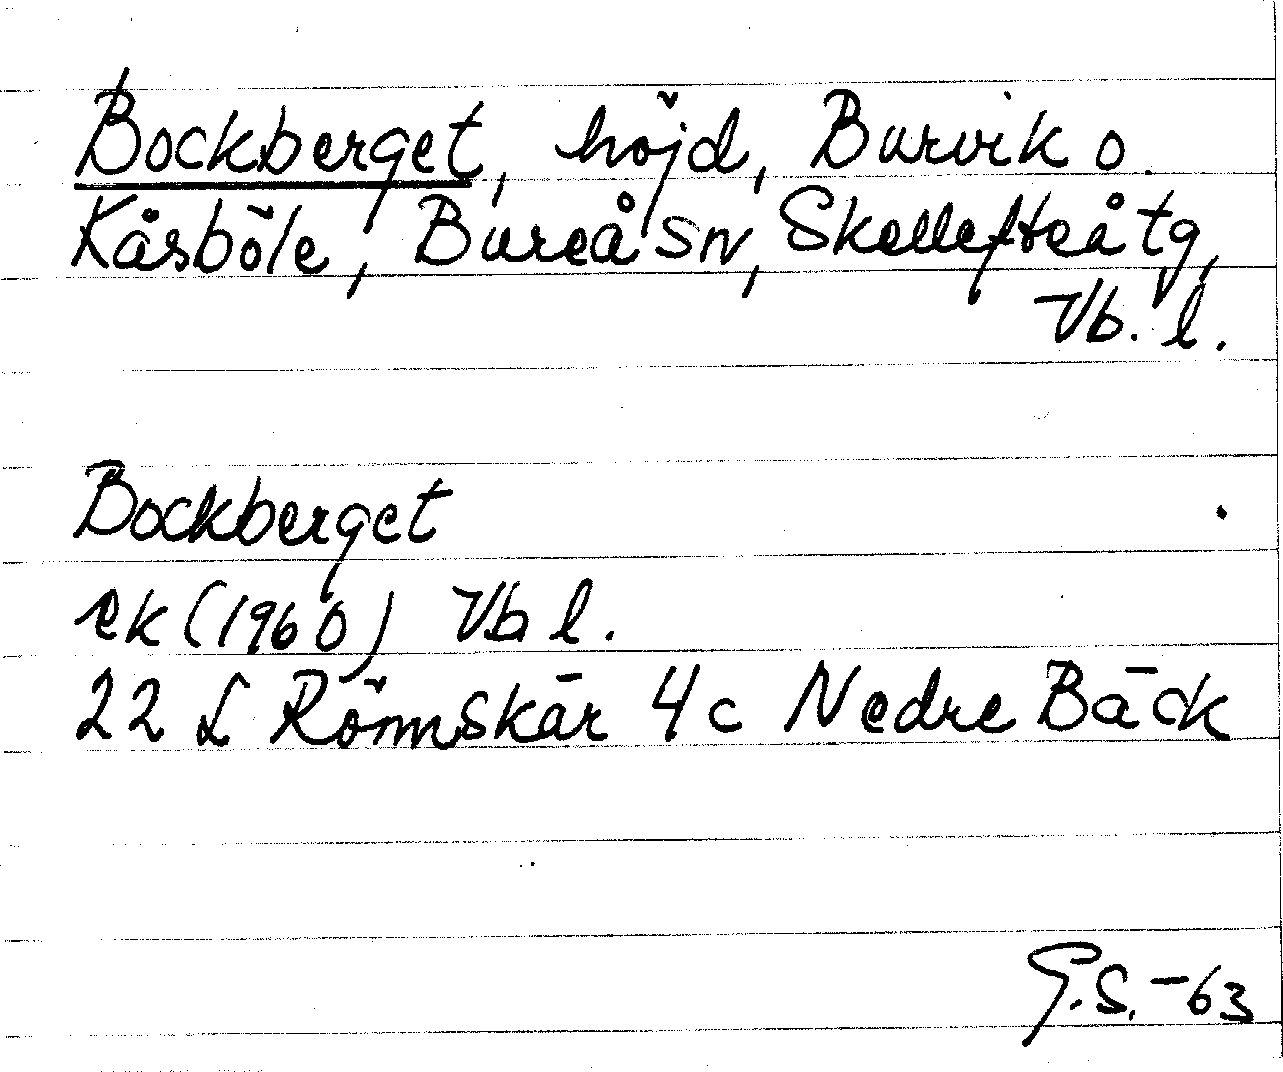 Bockberget, höjd, Burvik o.
Kåsböle, Bureå sn, Skellefteå tg,
Vb. l.
Bockberget
ek (1960) Vb l.
22 L Rönnskär 4c Nedre Bäck
G.S. -63